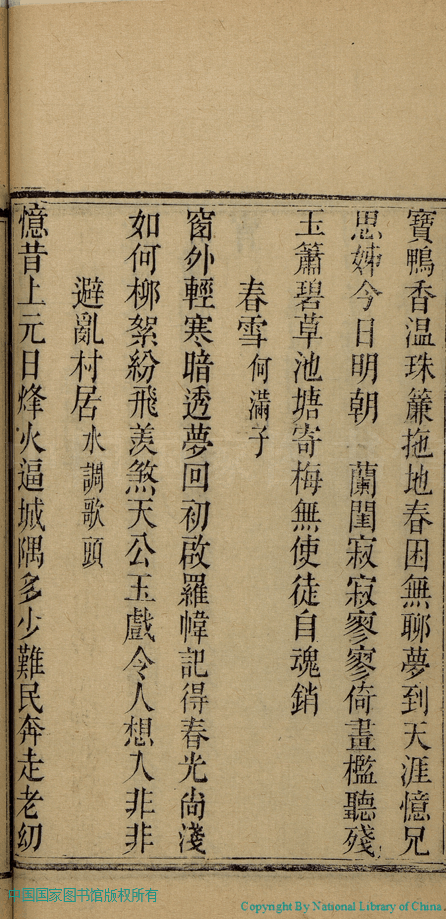 寶鴨香温珠簾拖地春困無聊夢到天涯憶兄
思姊今日明朝　蘭閨寂寂寥寥倚畫檻聽殘
玉簫碧草池塘寄梅無使徒自魂銷
春雪何滿子
窗外輕寒暗透夢回初啟羅幃記得春光尚淺
如何柳絮紛飛羨煞天公玉戲令人想入非非
避亂村居水調歌頭
憶昔上元日烽火逼城隅多少難民奔走老幼
中国国家图书馆版权所有
Copyright By National Library of China